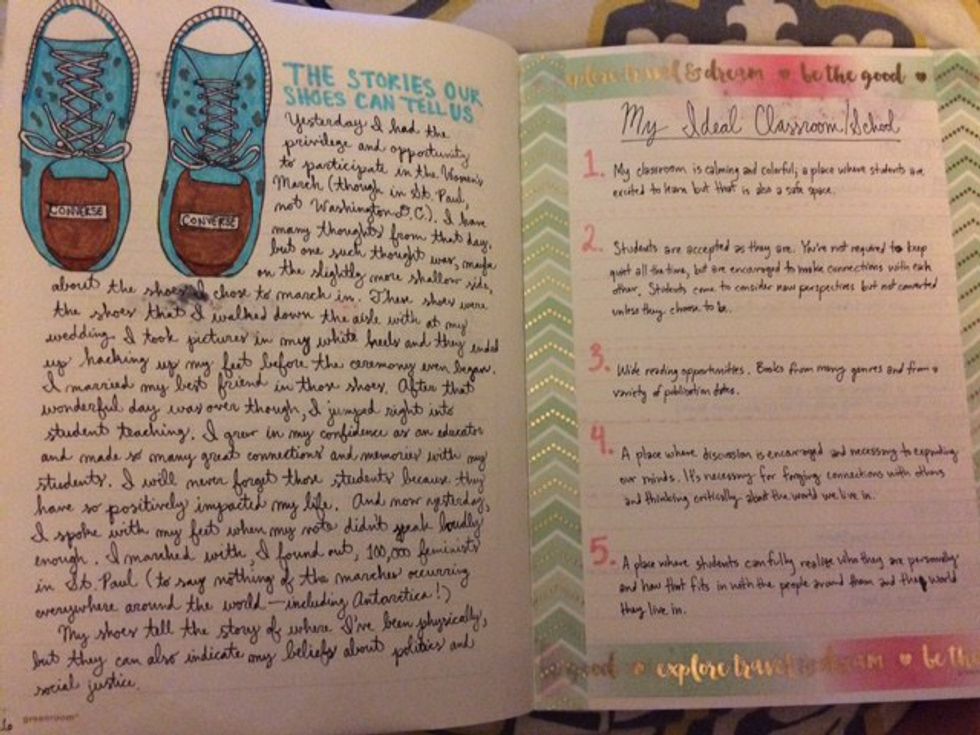 THE STORIES OUR
SHOES CAN TELL US
CONVERSE
CONVERSE
Yesterday I had the
privilege and opportunity
to participate in the Women's
March (though in St. Paul,
not Washington D.C.). I have
many thoughts from that day,
but one such thought was, maybe
on the slightly more shallow side,
about the shoes I chose to march in. These shoes were
the shoes that I walked down the aisle with at my
wedding. I took pictures in my white heels and they ended
up hacking up my feet before the ceremony even began.
I married my best friend in those shoes. After that
wonderful day was over though, I jumped right into
student teaching. I grew in my confidence as an educator
and made so many great connections and memories with my
students. I will never forget those students because they
have so positively impacted my life. And now yesterday,
I spoke with my feet when my vote didn't speak loudly
enough. I marched with, I found out, 100,000 feminists
in St. Paul (to say nothing of the marches occurring
everywhere around the world—including Antarctica!)
My shoes tell the story of where I've been physically,
but they can also indicate my beliefs about politics and
social justice.
greenroom
explore travel & dream ♥ be the good ♥
My Ideal Classroom/School
1. My classroom is calming and colorful; a place where students are
excited to learn but that is also a safe space.
2. Students are accepted as they are. You're not required to keep
quiet all the time, but are encouraged to make connections with each
other. Students come to consider new perspectives but not converted
unless they choose to be.
3. Wide reading opportunities. Books from many genres and from a
variety of publication dates.
4. A place where discussion is encouraged and necessary to expanding
our minds. It's necessary for forging connections with others
and thinking critically about the world we live in.
5. A place where students can fully realize who they are personally
and how that fits in with the people around them and the world
they live in.
good ♥ explore travel & dream ♥ be the